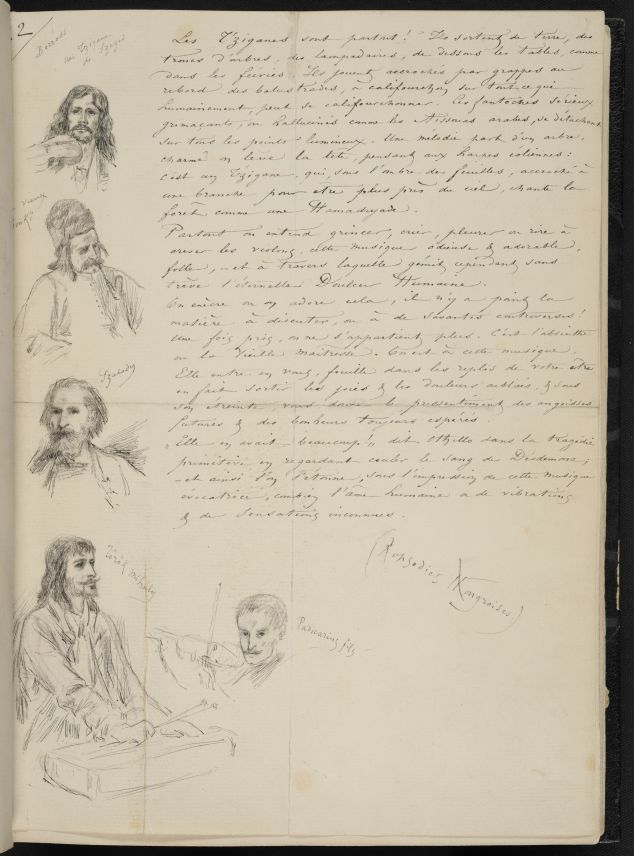 2
Les Tziganes sont partout! Ils sortent de terre, des
troncs d'arbres, des lampadaires, de dessous les tables, comme
dans les féeries. Ils jouent, accrochés par grappes au
rebord des balustrades, à califourchon, sur tout ce qui
humainement, peut se califourchonner. Ces fantoches sérieux
grimaçants, ou hallucinés comme les Aïssouas arabes, se détachent
sur tous les points lumineux. Une mélodie part d'un arbre.
charmé on lève la tête, pensant aux harpes éoliennes:
c'est un Tzigane, qui, sous l'ombre des feuilles, accroché à
une branche pour etre plus près du ciel, chante la
forêt comme une Hamadryade.
Partout on entend grincer, crier, pleurer ou rire à
les violons, cette musique odieuse & adorable,
folle, et à travers laquelle gémit cependant sans
trève l'éternelle Douleur Humaine.
On exècre ou on adore cela, il n'y a point là
matière à discuter, ou à de savantes controverses!
Une fois pris, on ne s'appartient plus. C'est l'absinthe
ou la Vieille maîtresse. On est à cette musique.
Elle entre en vous, fouille dans les replis de votre être
en fait sortir les joies & les douleurs oubliées, & sous
son étreinte, vous donne le pressentiment des angoisses
futures & des bonheurs toujours espérés.
"Elle en avait beaucoup!" dit Othello dans la tragédie
primitive en regardant couler le sang de Desdemona;
et ainsi l'on s'étonne, sous l'impression de cette musique
évocatrice, combien l'âme humaine a de vibrations
& de sensations inconnues.
(Rapsodies Hongroises)
un Tzigane
de
vieux
Szabady
Török mihaly
fils